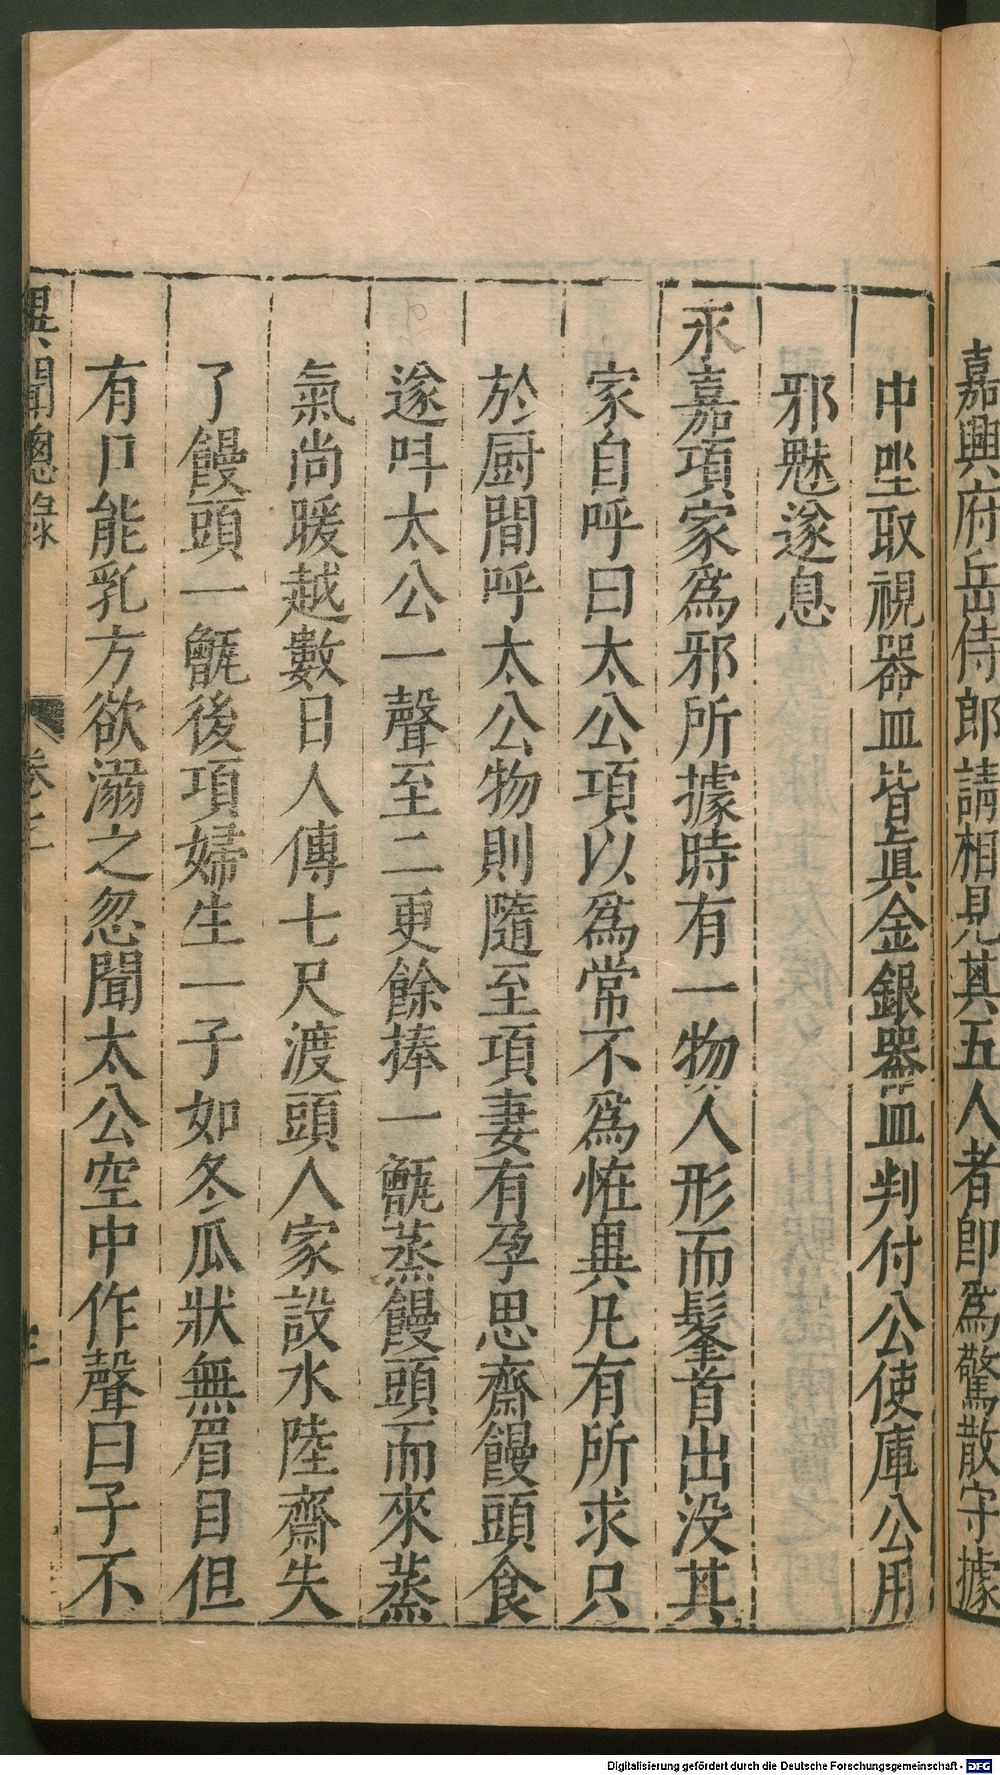 嘉興府岳侍郎請相見其五人者卽爲驚散守據
中坐取視器皿皆眞金銀器皿判付公使庫公用
邪魅遂息
永嘉項家爲邪所據時有一物人形而髼首出没其
家自呼曰太公項以爲常不爲恠異凡有所求只
於厨間呼太公物則隨至項妻有孕思齋饅頭食
遂呌太公一聲至二更餘捧一甑蒸饅頭而來蒸
氣尚暖越數日人傳七尺渡頭人家設水陸齋失
了饅頭一甑後項婦生一子如冬瓜狀無眉目但
有口能乳方欲溺之忽聞太公空中作聲曰子不
異聞總錄
卷之
Digitalisierung gefördert durch die Deutsche Forschungsgemeinschaft - DFG